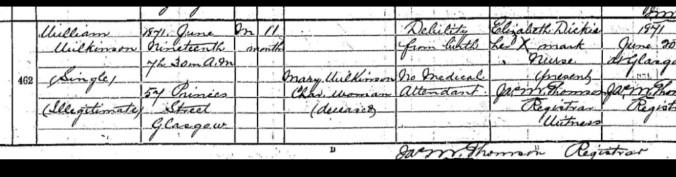 462
William
Wilkinson
(Single)
(Illegitimate)
1871. June
Nineteenth
7h 30m A.M
54 Princes
Street
Glasgow
M
11
months
Mary Wilkinson
Char woman
(deceased)
Debility
from birth
No Medical
Attendant
Elizabeth Dickie
her X mark
Nurse
(present)
Jas M. Thomson
Registrar
Witness
1871
June 20
Glasgow
Jas M. Thomson
Registrar
Jas M. Thomson Registrar